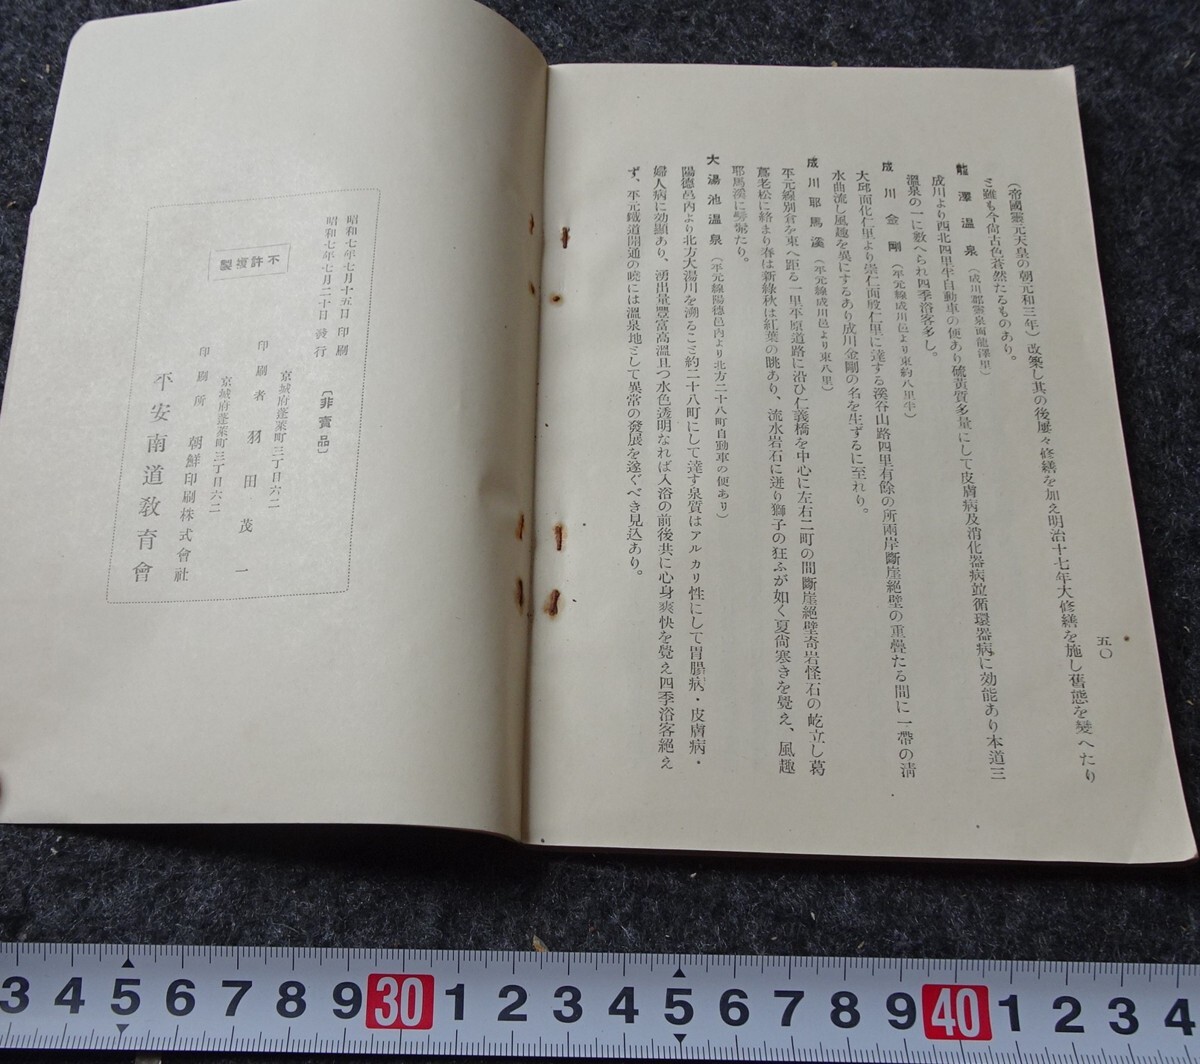 五〇
(帝國靈元天皇の朝元和三年)改築し其の後屢々修繕を加え明治十七年大修繕を施し舊態を變へたり
と雖も今尙古色蒼然たるものあり。
龍澤溫泉(成川郡靈泉面龍澤里)
成川より西北四里半自動車の便あり硫黃質多量にして皮膚病及消化器病並循環器病に効能あり本道三
溫泉の一に數へられ四季浴客多し。
成川金剛(平元線成川邑より東約八里半)
大邱面化仁里より崇仁面殷仁里に達する溪谷山路四里有餘の所兩岸斷崖絕壁の重疊たる間に一帶の淸
水曲流し風趣を異にするあり成川金剛の名を生ずるに至れり。
成川耶馬溪(平元線成川邑より東八里)
平元線別倉を東へ距る一里平原道路に沿ひ仁義橋を中心に左右二町の間斷崖絕壁奇岩怪石の屹立し葛
蔦老松に絡まり春は新綠秋は紅葉の眺あり、流水岩石に迸り獅子の狂ふが如く夏尙寒きを覺え、風趣
耶馬溪に髣髴たり。
大湯池溫泉(平元線陽德邑內より北方二十八町自動車の便あり)
陽德邑內より北方大湯川を溯ること約二十八町にして達す泉質はアルカリ性にして胃腸病・皮膚病・
婦人病に効顯あり、湧出量豐富高溫且つ水色透明なれば入浴の前後共に心身爽快を覺え四季浴客絕え
ず、平元鐵道開通の曉には溫泉地として異常の發展を遂ぐべき見込あり。
昭和七年七月十五日 印刷
昭和七年七月二十日 發行
〔非賣品〕
不許複製
京城府蓬萊町三丁目六二
印刷者 羽田茂一
京城府蓬萊町三丁目六二
印刷所 朝鮮印刷株式會社
平安南道敎育會
3 4 5 6 7 8 9 30 1 2 3 4 5 6 7 8 9 40 1 2 3 4